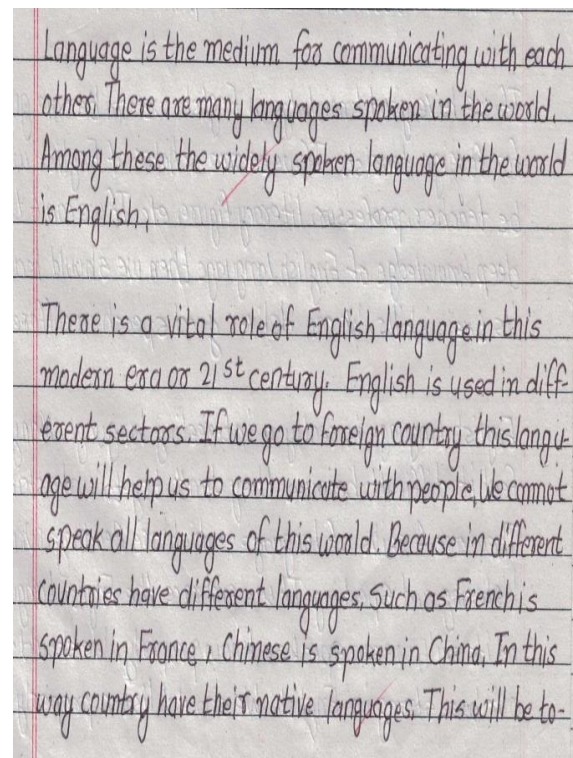 Language is the medium for communicating with each
other. There are many languages spoken in the world.
Among these the widely spoken language in the world
is English.
There is a vital role of English language in this
modern era or 21st century. English is used in diff-
erent sectors. If we go to foreign country this langu-
age will help us to communicate with people. We cannot
speak all languages of this world. Because in different
countries have different languages. Such as French is
spoken in France, Chinese is spoken in China. In this
way country have their native languages. This will be to-